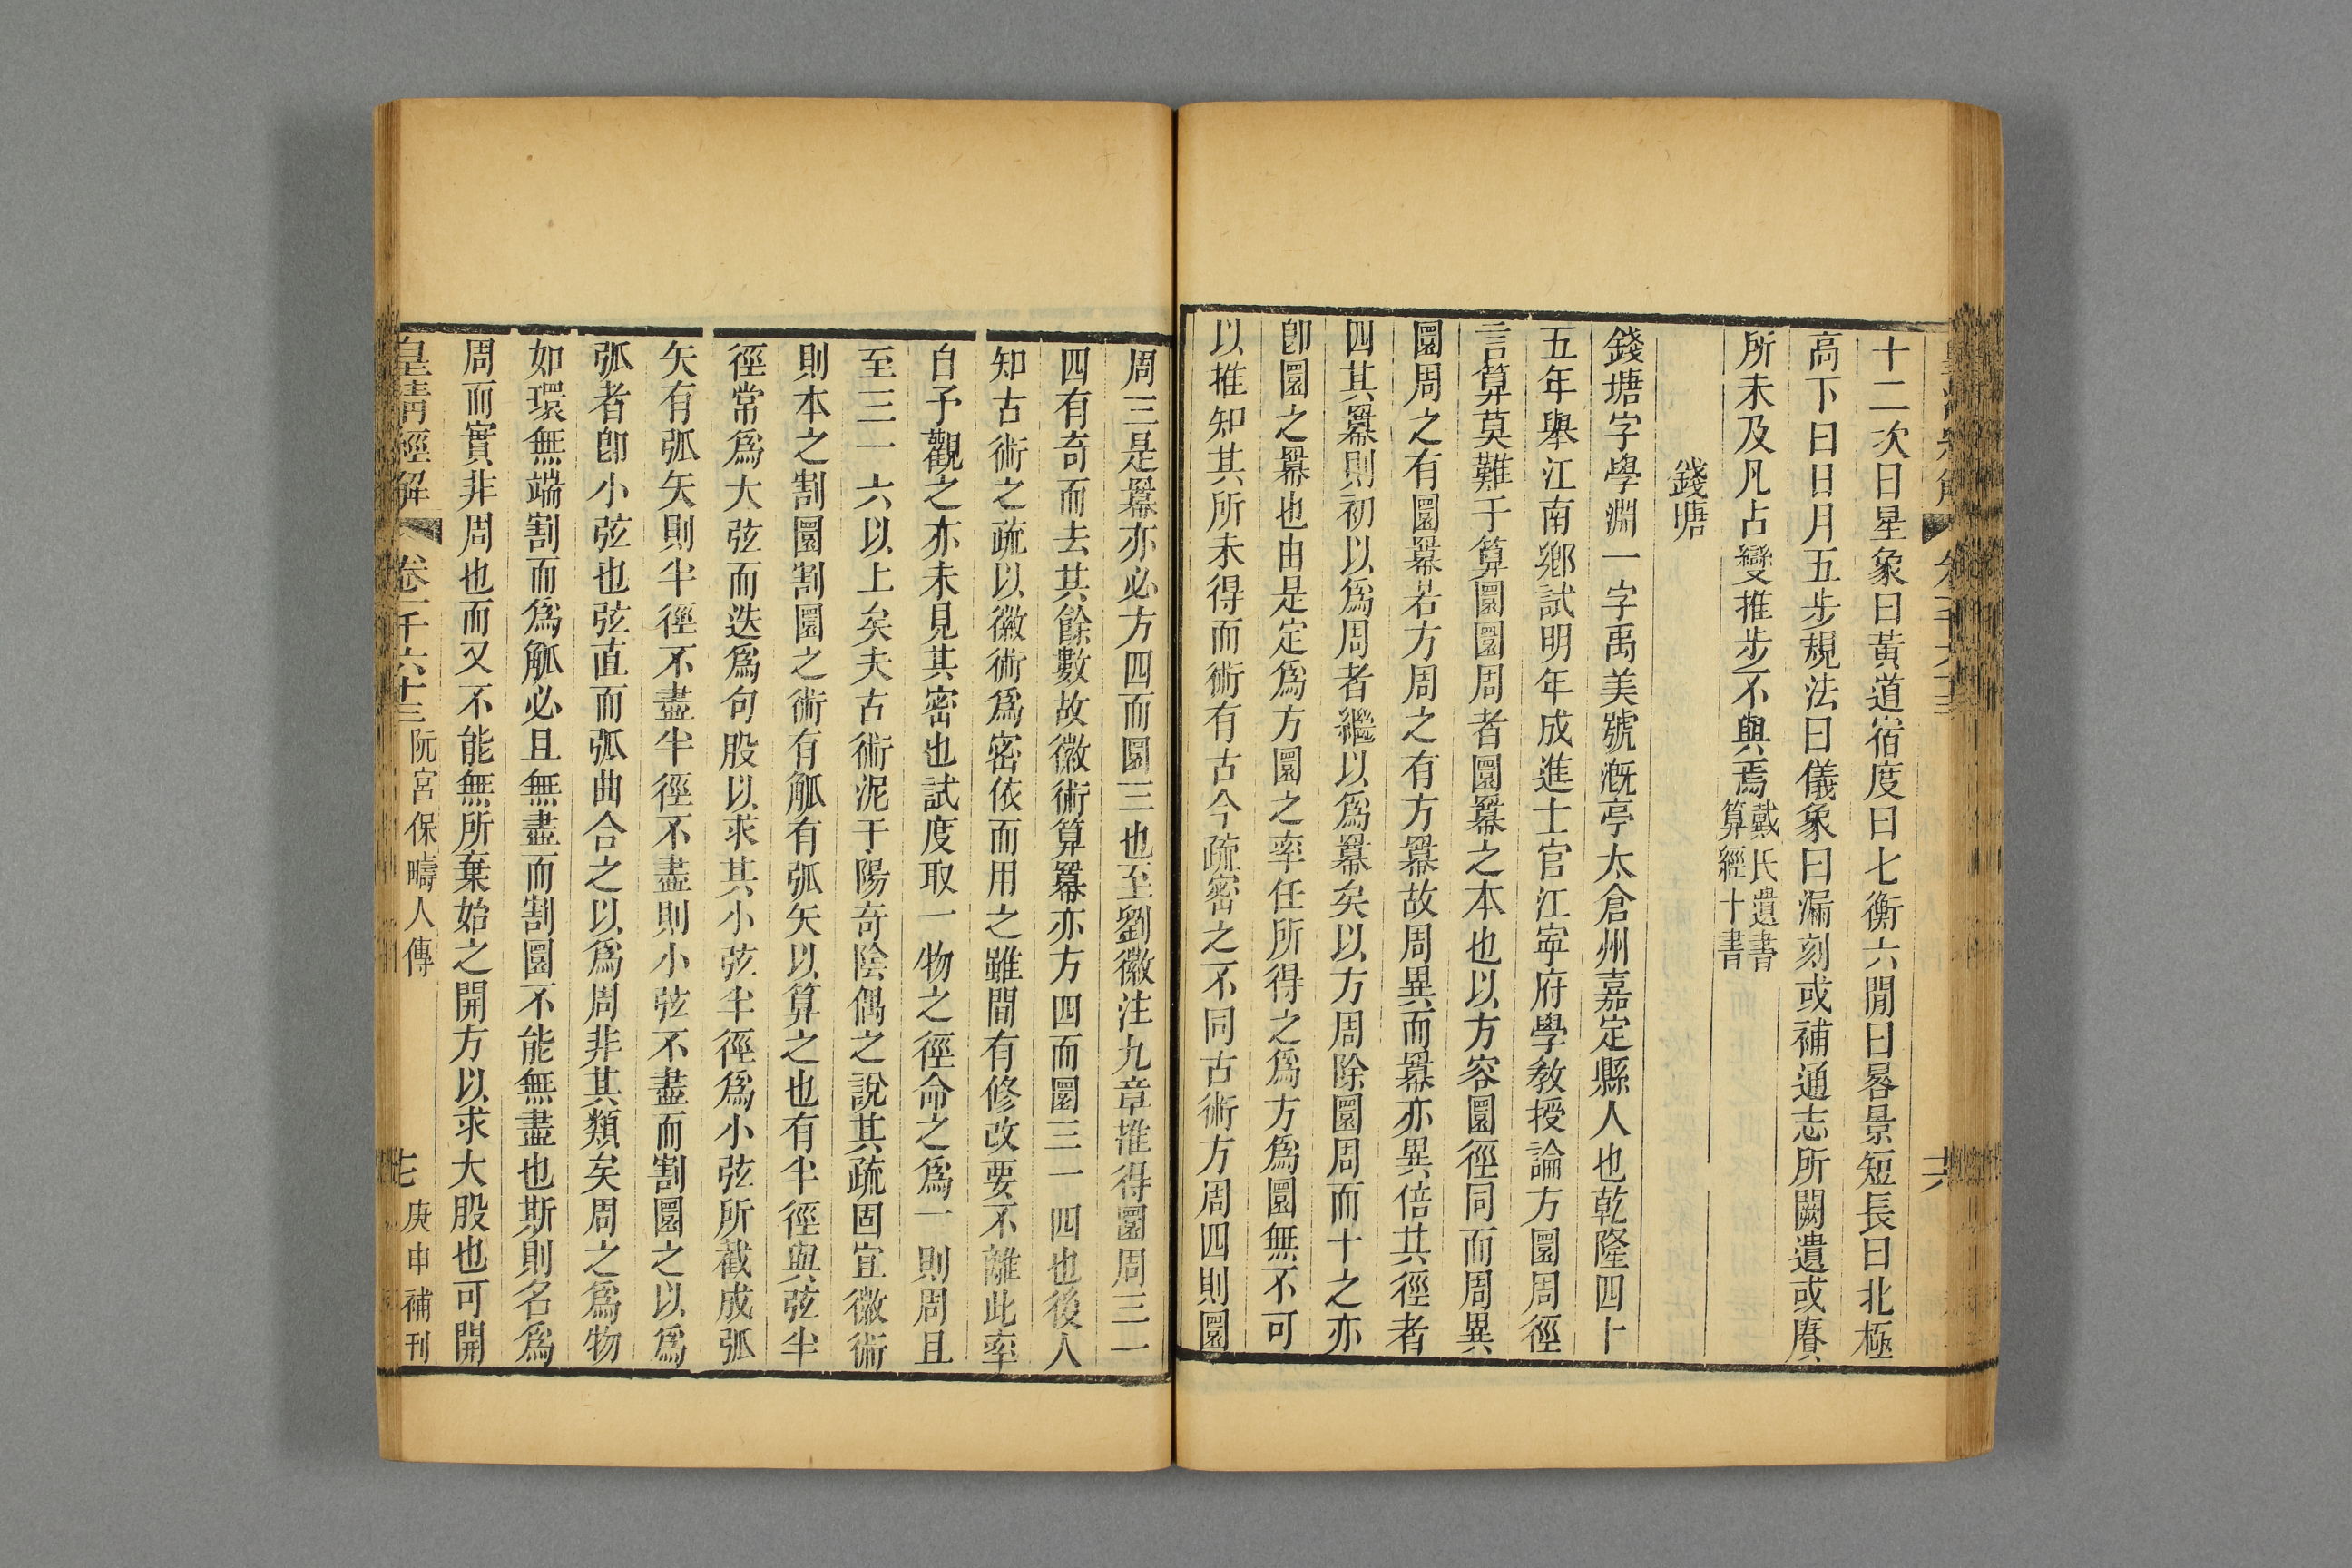 十二次曰星象曰黃道宿度曰七衡六閒曰晷景短長曰北極
高下曰日月五步規法曰儀象曰漏刻或補通志所闕遺或賡
所未及凡占變推步不與焉戴氏遺書
算經十書
錢塘
錢塘字學淵一字禹美號溉亭太倉州嘉定縣人也乾隆四十
五年舉江南鄉試明年成進士官江寧府學敎授論方圜周徑
言算莫難于算圜圜周者圜冪之本也以方容圜徑同而周異
圜周之有圜冪若方周之有方冪故周異而冪亦異倍其徑者
四其冪則初以爲周者繼以爲冪矣以方周除圜周而十之亦
卽圜之冪也由是定爲方圜之率任所得之爲方爲圜無不可
以推知其所未得而術有古今疏密之不同古術方周四則圜
周三是冪亦必方四而圜三也至劉徽注九章推得圜周三一
四有奇而去其餘數故徽術算冪亦方四而圜三一四也後人
知古術之疏以徽術爲密依而用之雖間有修改要不離此率
自予觀之亦未見其密也試度取一物之徑命之爲一則周且
至三一六以上矣夫古術泥于陽奇陰偶之說其疏固宜徽術
則本之割圜割圜之術有觚有弧矢以算之也有半徑與弦半
徑常爲大弦而迭爲句股以求其小弦半徑爲小弦所截成弧
矢有弧矢則半徑不盡半徑不盡則小弦不盡而割圜之以爲
弧者卽小弦也弦直而弧曲合之以爲周非其類矣周之爲物
如環無端割而爲觚必且無盡而割圜不能無盡也斯則名爲
周而實非周也而又不能無所棄始之開方以求大股也可開
皇清經解 卷一千六十三 阮宮保疇人傳 七 庚申補刊